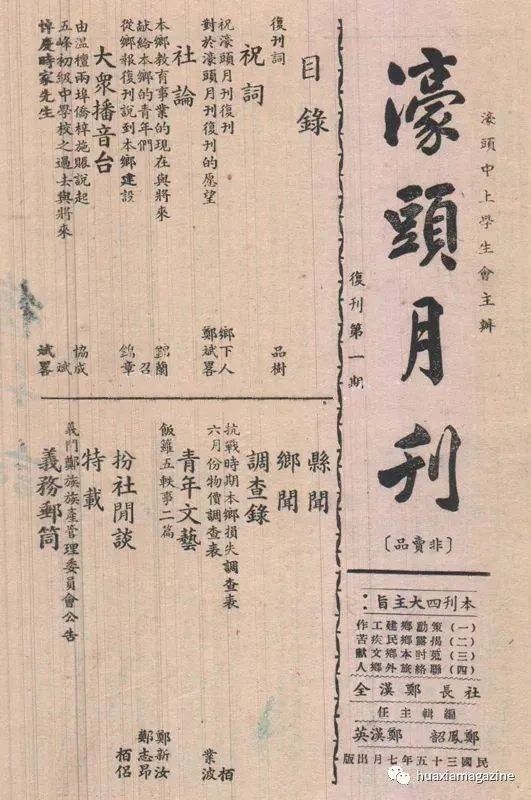 濠頭中上學生會主辦
濠頭月刊
復刊第一期
〔非賣品〕
本刊四大主旨：
（一）策勵鄉建工作
（二）揭露鄉民疾苦
（三）蒐討本鄉文献
（四）聯絡旅外鄉人
社長 鄭漢全
編輯主任
鄭鳳韶 鄭漢英
民國三十五年七月出版
目錄
復刊詞 品樹
祝詞
祝濠頭月刊復刊 鄉下人
對於濠頭月刊復刊的愿望 鄭斌畧
社論
本鄉教育事業的現在與將來 錦蘭
献給本鄉的青年們 召
從鄉報復刊說到本鄉建設 錦章
大衆播音台
由溫檀兩埠僑梓施賬說起 協成
五峰初級中學校之過去與將來 斌
悼慶時家先生 斌畧
縣聞
鄉聞
調查錄
抗戰時期本鄉損失調查表 柏
六月份物價調查表 業波
青年文藝
飯籮五軼事二篇
扮社閒談 鄭新汝
特載 鄭志昂
義門鄭族族產管理委員會公告 柏侶
義務郵筒
huaxiamagazine